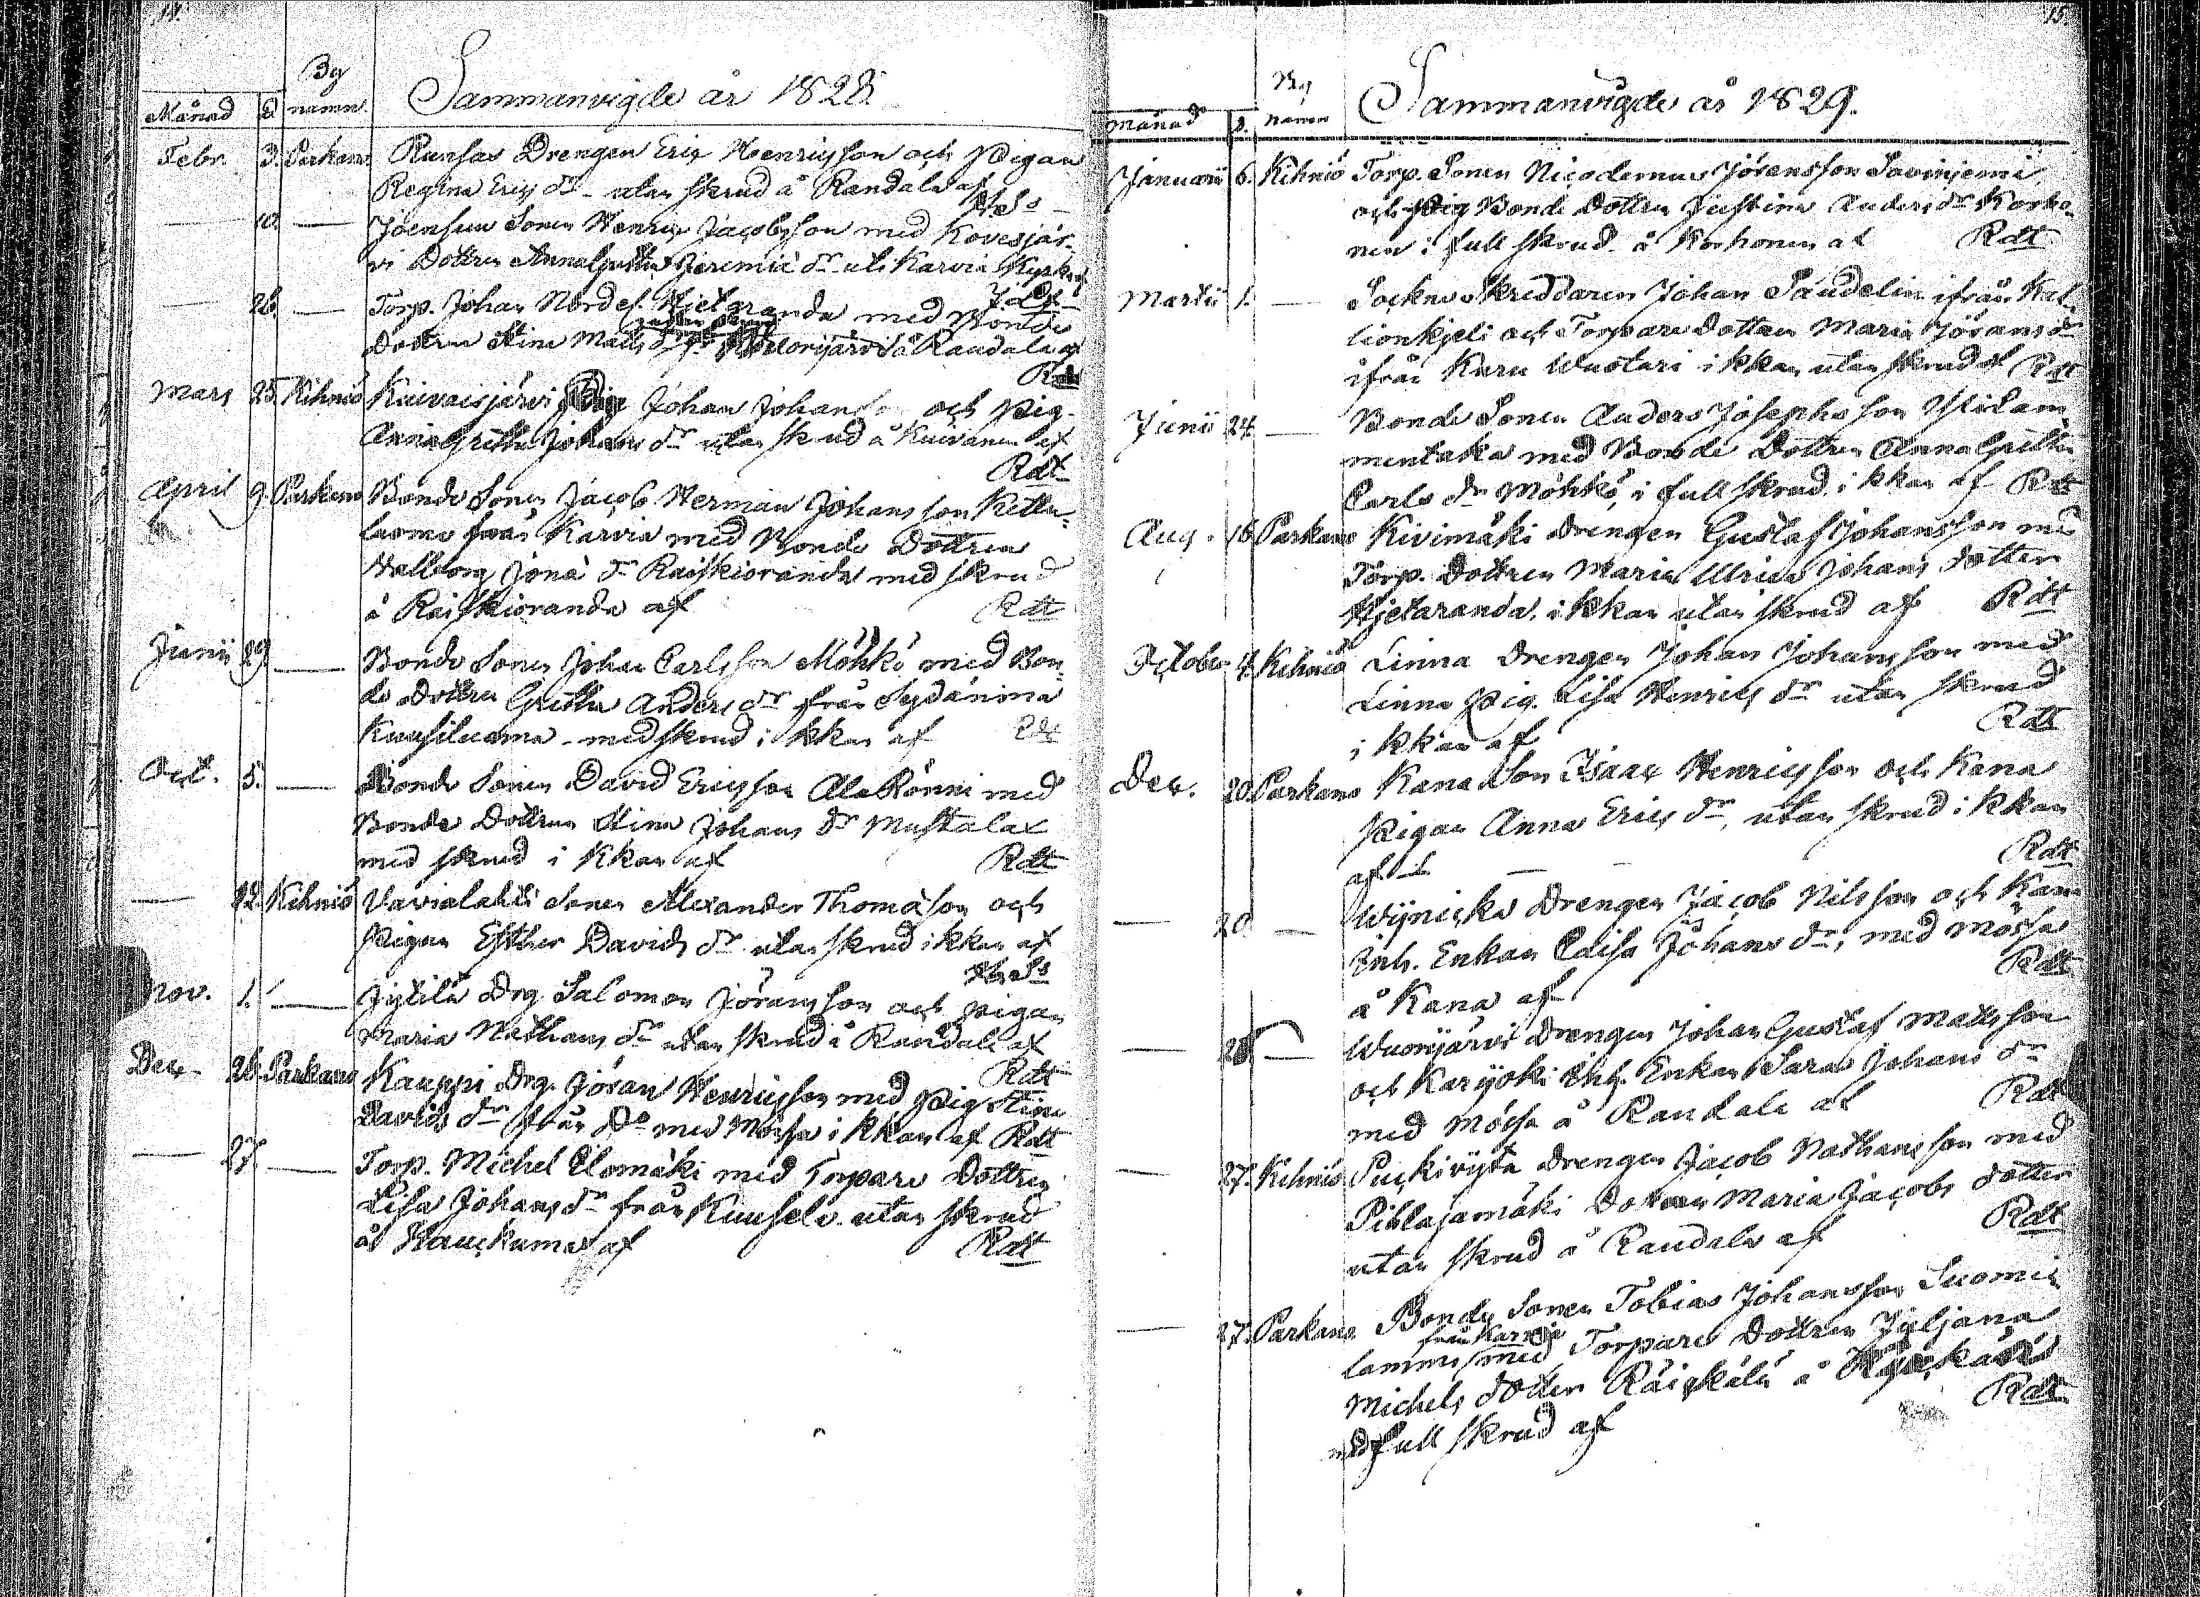 14.
By
Månad D. namn. Sammanvigde år 1828.
Febr. 3. Parkano Runsas Drengen Eric Henricsson och Pigan
Regina Erics dr - utan skrud å Randala af
10. — Joensuu Sonen Henric Jacobsson med Kovesjär-
vi Dottren Anna Justina Jeremiæ dr uti Karvia Kyrka
26. — Torp. Johan Nordef. Hietaranda med Bonde
utan skrud
Dottren Stina Matts dr Vuorijärvi å Randala af
Rdt
Mars 25. Kihniö Kuivaisjärvi Johan Johansson och Pig.
Anna Gretha Johans dr utan skrud å Kuivanen af
Rdt
April 9. Parkano Bonde Sonen Jacob Herman Johansson Kettu-
luoma från Karvia med Bonde Dottren
Valborg Jonæ dr Raiskioranda med skrud
å Raiskioranda af Rdt
Junii 29 — Bonde Sonen Johan Carlsson Möhkö med Bon-
de Dottren Gretha Anders dr från Sydänmaa
Kuusiluoma - med skrud i kkan af Rdt
Oct. 5. — Bonde Sonen David Ericsson Ala Rönni med
Bonde Dottren Stina Johans dr Mustalax
med skrud i Kkan af Rdt
— 12. Kihniö Vavialahti Sonen Alexander Thomæson och
Pigan Esther Davids dr utan skrud i kkan af
Nov. 1. — Jylilä Drg. Salomon Jöransson och pigan
Maria Nathans dr utan skrud å Randala af
Rdt
Dec. 26. Parkano Kauppi Drg. Jöran Henricsson med Pig. Stina
Davids dr från Do med Mössa i Kkan af Rdt
— 27. — Torp. Michel Elomäki med Torpare Dottren
Lisa Johans dr från Kuusela utan skrud
å Kauckuma af Rdt
15.
By
Månad D. namn Sammanvigde år 1829.
Januarii 6. Kihniö Torp. Sonen Nicodemus Jöransson Savinjemi
och Bonde Dottren Justina Anders dr Korho-
nen i full skrud å Korhonen af Rdt
Martii 1. — Sockne Skreddaren Johan Saudelin ifrån Kal-
lionkjeli och Torpare dottren Maria Jörans dr
ifrån Kuru Wastari i kkan utan skrud af Rdt
Junii 24. — Bonde Sonen Anders Josephsson Ylidam-
mentaka med Bonde Dottren Anna Gretha
Carls dr Möhkö, i full skrud, i kkan af Rdt
Aug. 16. Parkano Kivimäki drengen Gustaf Johansson med
Torp. Dottren Maria Ulrica Johans dotter
Hjetaranda, i kkan utan skrud af Rdt
October 4. Kihniö Linna drengen Johan Johansson med
Linna Pig. Lisa Henrics dr utan skrud
i kkan af Rdt
Dec. 20. Parkano Kana Son Isaac Henricsson och Kana
Pigan Anna Erics dr, utan skrud i kkan
af Rdt
— 20 — Wijnicka Drengen Jacob Nilsson och Kana
Inh. Enkan Caisa Johans dr, med mössa
å Kana af Rdt
— 28. — Wuorijärvi Drengen Johan Gustaf Mattsson
och Karijoki Inh. Enkan Sara Johans dr
med mössa å Randala af Rdt
— 27. Kihniö Puckivijta drengen Jacob Nathansson med
Pihlajamäki Dottren Maria Jacobs dotter
utan skrud å Randala af Rdt
— 27. Parkano Bonde Sonen Tobias Johansson Suomen
från Karvia
lammi med Torpare Dottren Juljana
Michels dotter Räiskälä å Kyrkan
med full skrud af Rdt